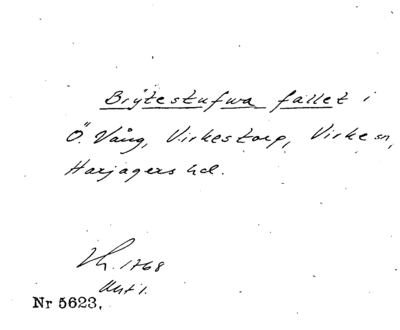 Brÿtestufwa fallet i
Ö. Vång, Virkestorp, Virke sn,
Harjagers hd.
Lh. 1768
Akt 1.
Nr 5623.